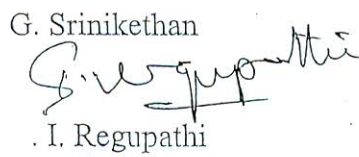 G. Srinikethan
. I. Regupathi